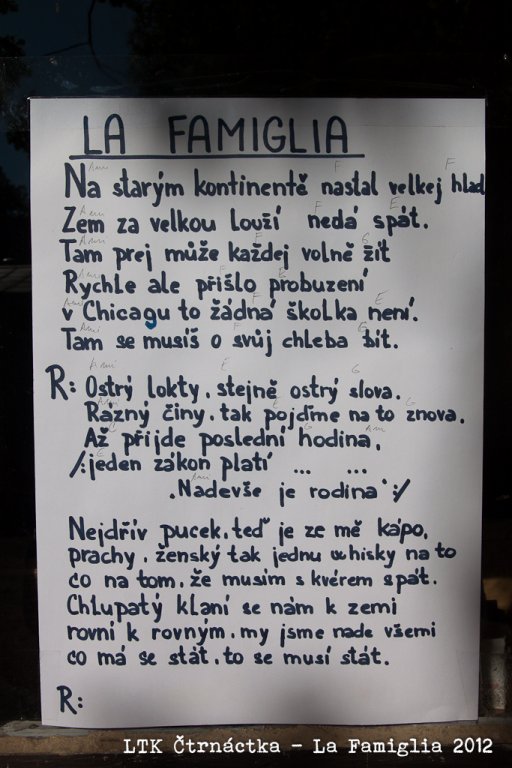 LA FAMIGLIA
Ami F F
Na starým kontinentě nastal velkej hlad
Ami F E
Zem za velkou louží nedá spát.
Ami F G
Tam prej může každej volně žít
Ami F E
Rychle ale přišlo probuzení
Ami F E
v Chicagu to žádná školka není.
Ami F E
Tam se musíš o svůj chleba bít.
Ami E G
R: Ostrý lokty, stejně ostrý slova.
Razný činy, tak pojďme na to znova.
Až přijde poslední hodina,
/: jeden zákon platí ... ...
„Nadevše je rodina" :/
Nejdřív pucek, teď je ze mě kápo,
prachy, ženský tak jednu whisky na to
co na tom, že musím s kvérem spát.
Chlupatý klaní se nám k zemi
rovní k rovným, my jsme nade všemi
co má se stát, to se musí stát.
R:
LTK Čtrnáctka - La Famiglia 2012